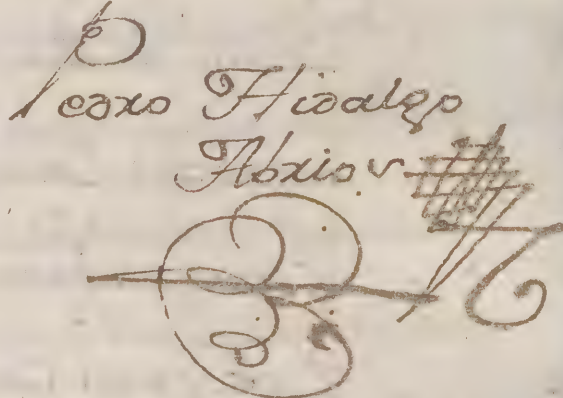 Pedro Hidalgo
Abrio